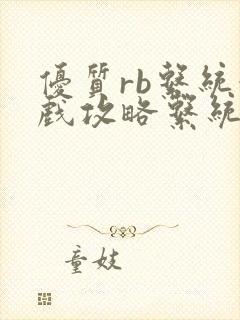 優質rb繫統
戲攻略繫統
童妓